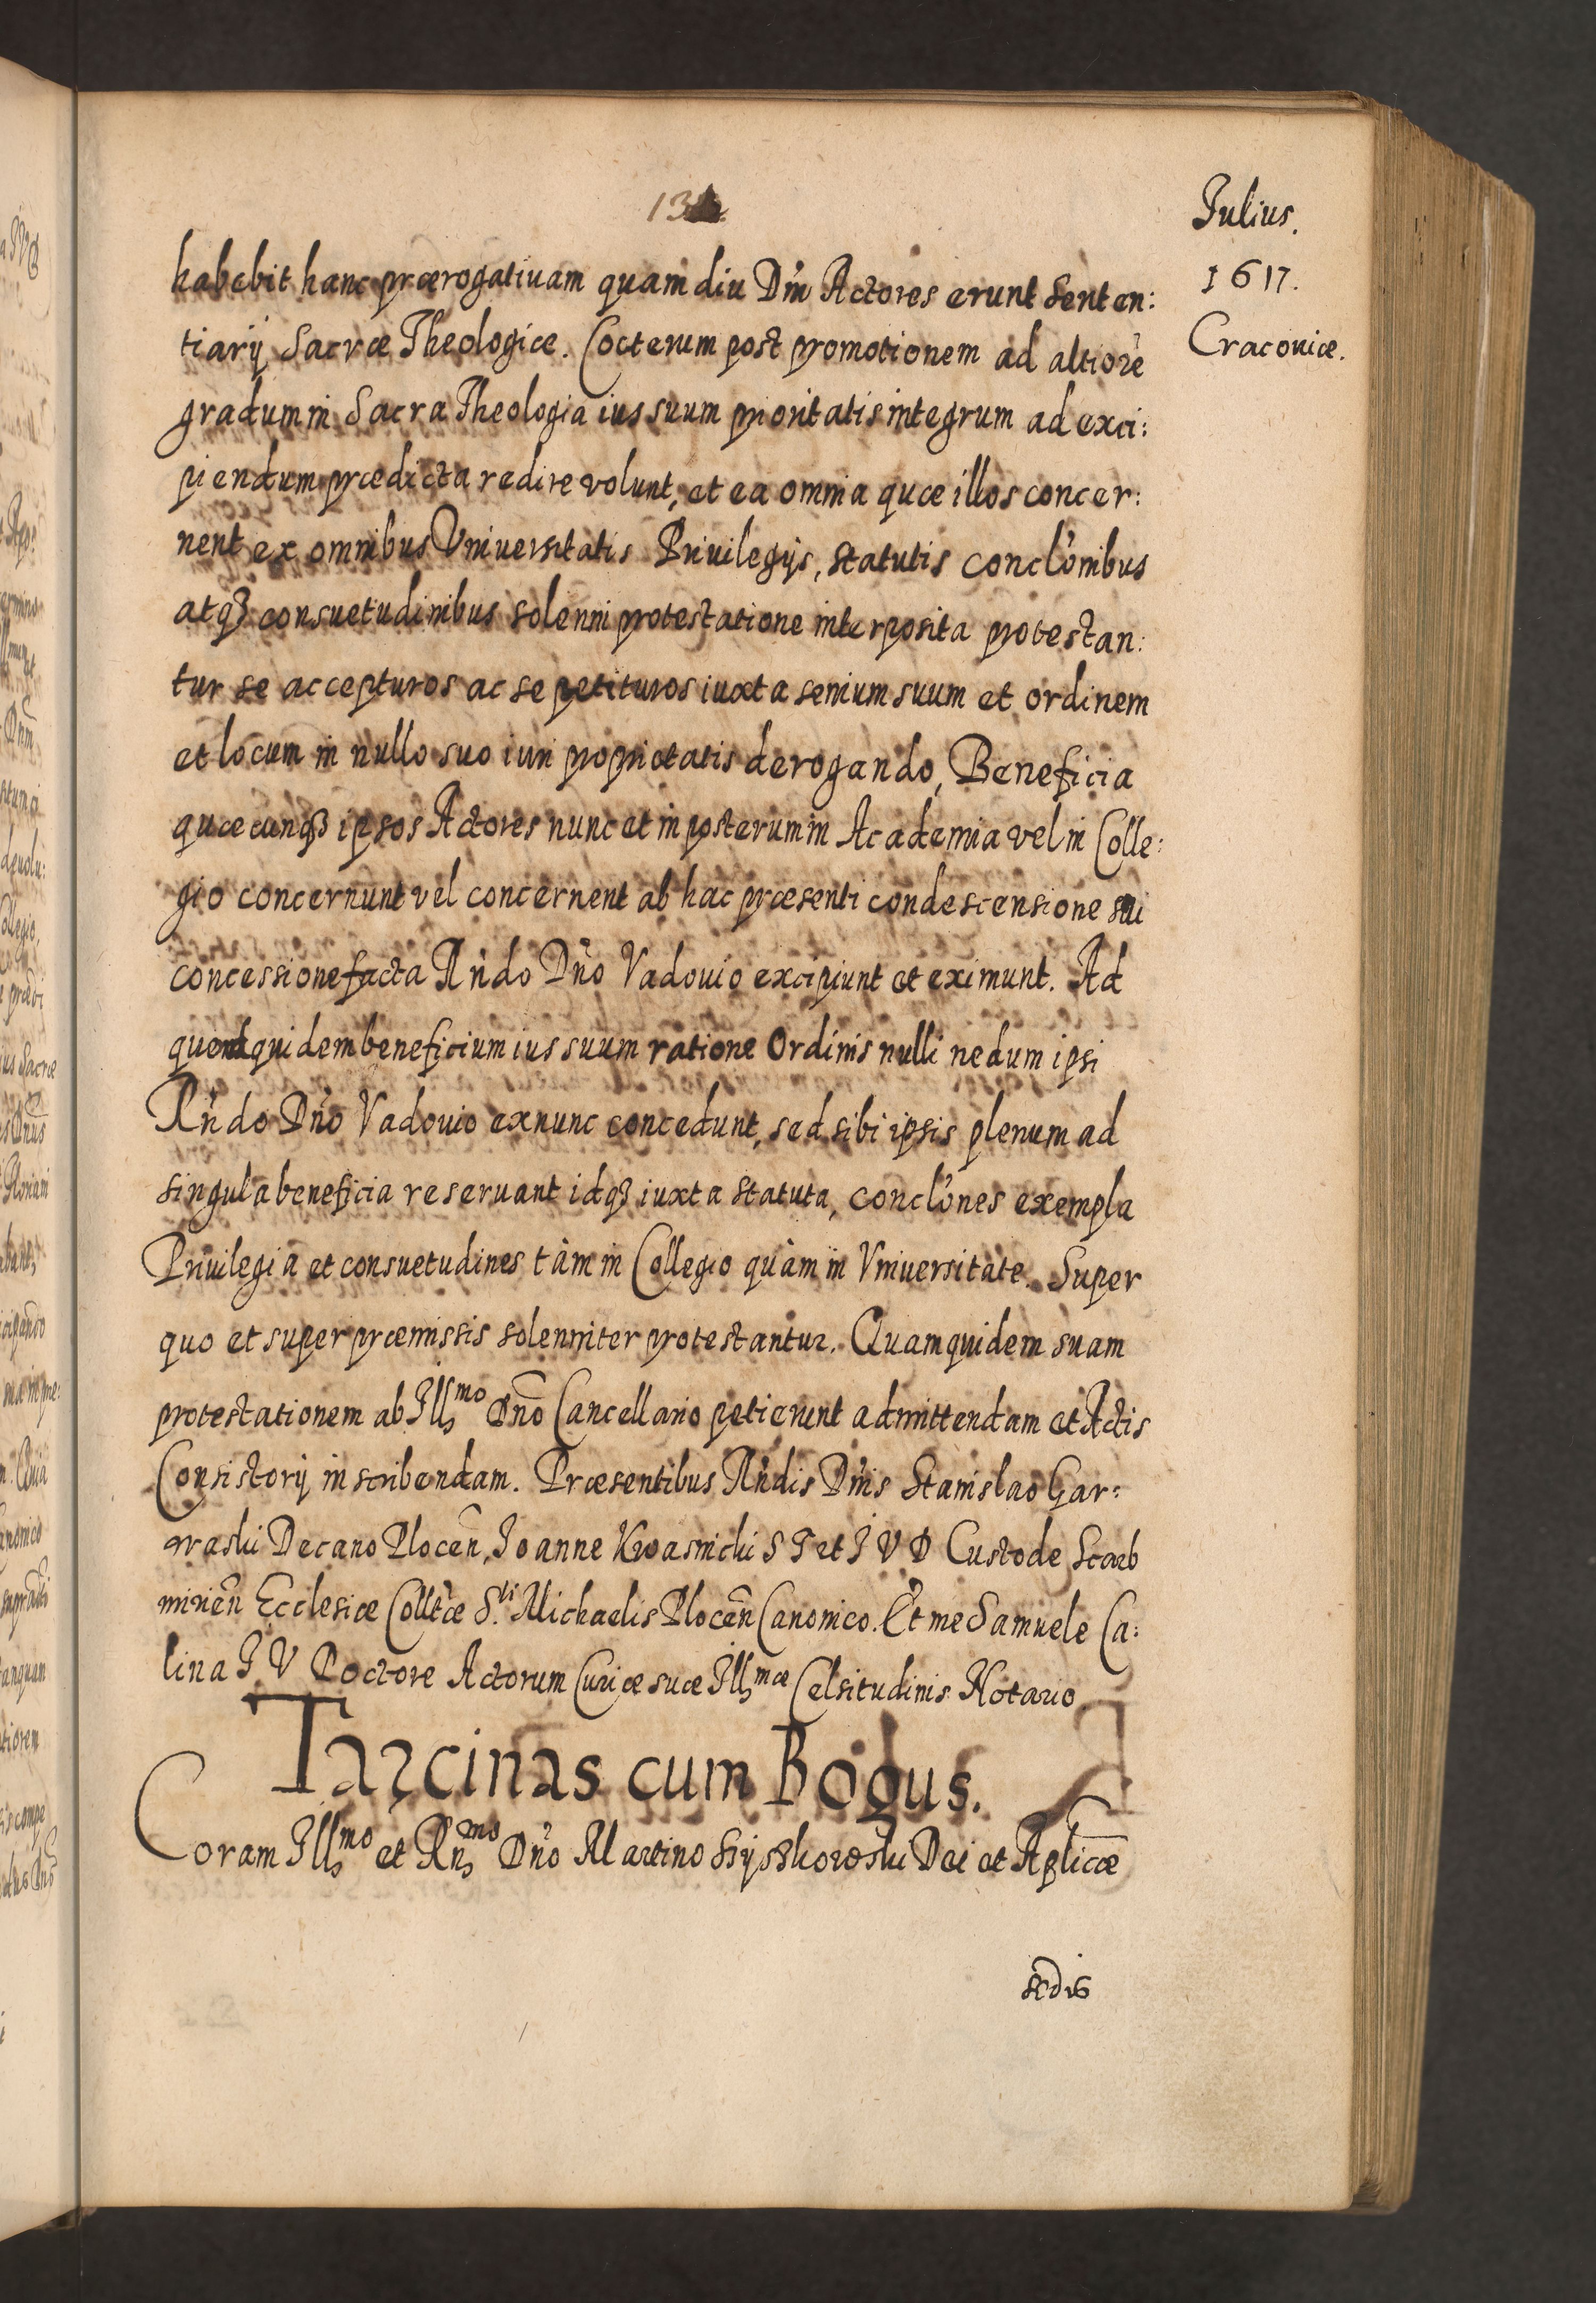 Iulius.
1617.
Cracouiæ.
habebit hanc prærogatiuam quamdiu Dni Actores erunt Senten:
tiarij Sacræ Theologiæ. Cœterum post promotionem ad altiorē
gradum in Sacra Theologia ius suum prioritatis integrum ad exci:
piendum prædicta redire volunt, et ea omnia quæ illos concer:
nent ex omnibus Vniuersitatis Priuilegijs, statutis conclonibus
atqȝ consuetudinibus solenni protestatione interposita protestan:
tur se accepturos ac se petituros iuxta senium suum et ordinem
et locum in nullo suo iuri proprietatis derogando, Beneficia
quæcunqȝ ipsos Actores nunc et in posterum in Academia vel in Colle:
gio concernunt vel concernent ab hac præsenti condescensione seu
concessione facta Rndo Dno Vadouio excipiunt et eximunt. Ad
quod quidem beneficium ius suum ratione Ordinis nulli nedum ipsi
Rndo Dno Vadouio exnunc concedunt, sed sibi ipsis plenum ad
singula beneficia reseruant idqȝ iuxta statuta, conclones exempla
Priuilegia et consuetudines tàm in Collegio quàm in Vniuersitate. Super
quo et super præmissis solenniter protestantur. Quam quidem suam
protestationem ab Illmo Dnō Cancellario petierunt admittendam et Actis
Consistorij inscribendam. Præsentibus Rndis Dnis Stanislao Gar:
waski Decano Plocen̄, Ioanne Kwasnicki S T et I V D Custode Scarb
mirien̄ Ecclesiæ Colltæ S.ti Michaelis Plocen̄ Canonico. Et me Samuele Ca:
lina I V Doctore Actorum Curiæ suæ Illmæ Celsitudinis Notario
Tarcinas cum Bogus.
Coram Illmo et Rnmo Dno Martino Szyszkowski Dei et Aplicæ
sedis